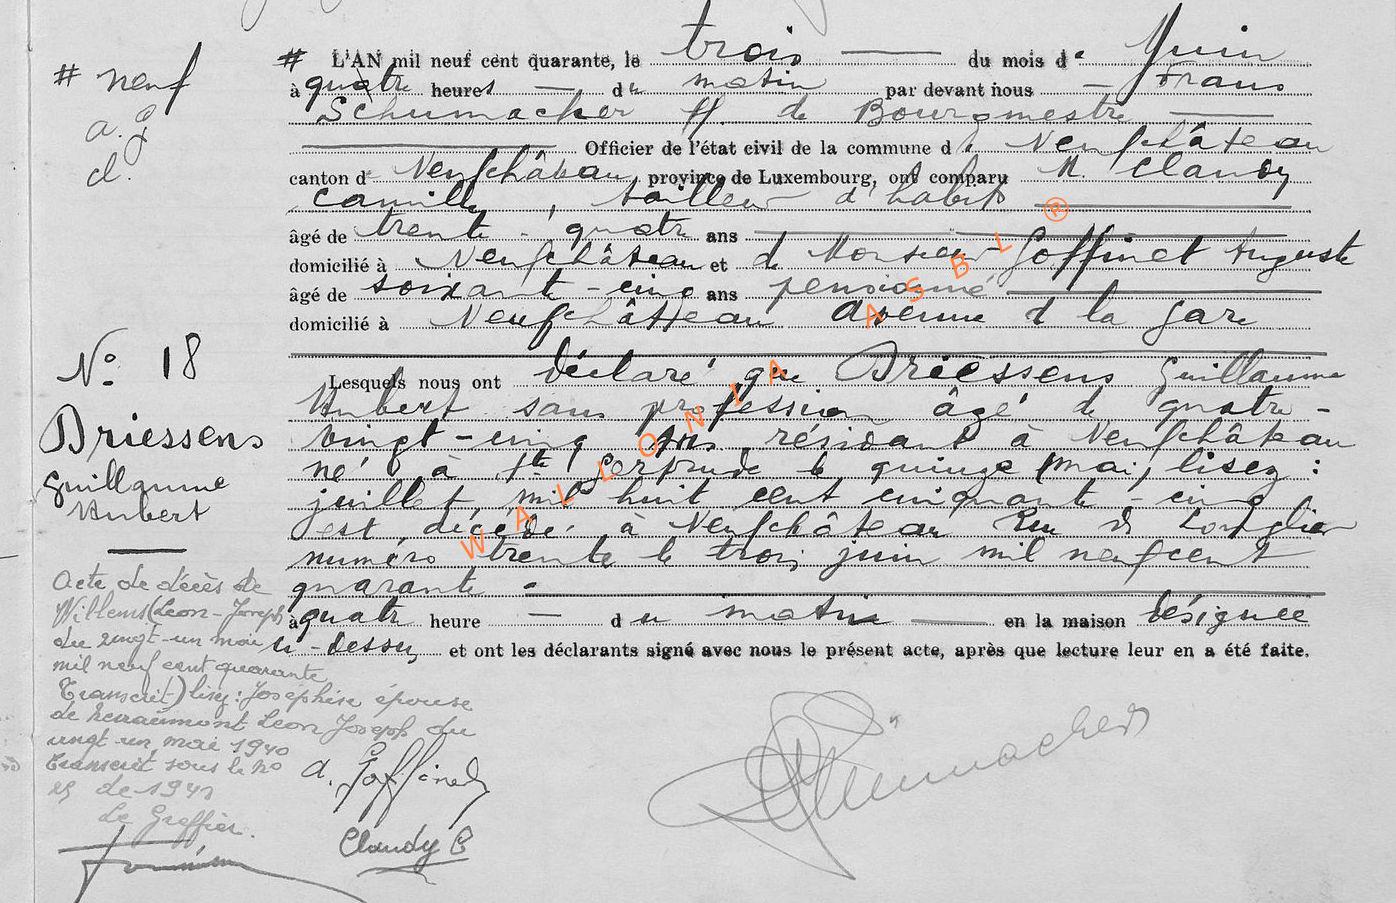 # neuf
a. g
cl.
# L'AN mil neuf cent quarante, le trois du mois de Juin
à quatre heures du matin par devant nous Frans
Schumacher ff. de Bourgmestre
Officier de l'état civil de la commune de Neufchâteau
canton de Neufchâteau, province de Luxembourg, ont comparu M. Claudy
Camille, tailleur d'habits
âgé de trente-quatre ans
domicilié à Neufchâteau et de Monsieur Goffinet Auguste
âgé de soixante-cinq ans pensionné
domicilié à Neufchâteau Avenue de la gare
Lesquels nous ont déclaré que Driessens Guillaume
Hubert sans profession âgé de quatre-
vingt-cinq ans résidant à Neufchâteau
né à Ste Gertrude le quinze (mai, lisez :
juillet, mil huit cent cinquante-cinq
est décédé à Neufchâteau Rue de Longlier
numéro trente le trois juin mil neuf cent
quarante -
à quatre heure du matin en la maison désignée
ci-dessus et ont les déclarants signé avec nous le présent acte, après que lecture leur en a été faite.
No 18
Driessens
Guillaume
Hubert
Acte de décès de
Willems (Léon-Joseph
du vingt-un mai
mil neuf cent quarante
Transcrit) lisez : Joséphine épouse
de Léon Joseph du
vingt-un mai 1940
Transcrit sous le no
de 1941
Le Greffier.
a. Goffinet
Claudy C
Schumacher
WALLONIA ASBL ®